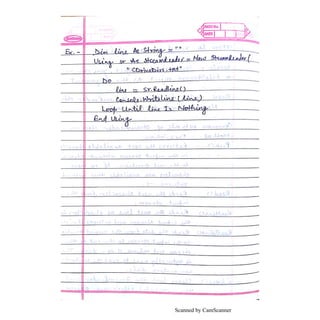 Ex. - Dim line As String = ""
Using sr As StreamReader = New StreamReader(
"CDrbatim.txt"
Do
line = sr.Readline()
Console.Writeline (line)
Loop Until line Is Nothing
End Using
Scanned by CamScanner